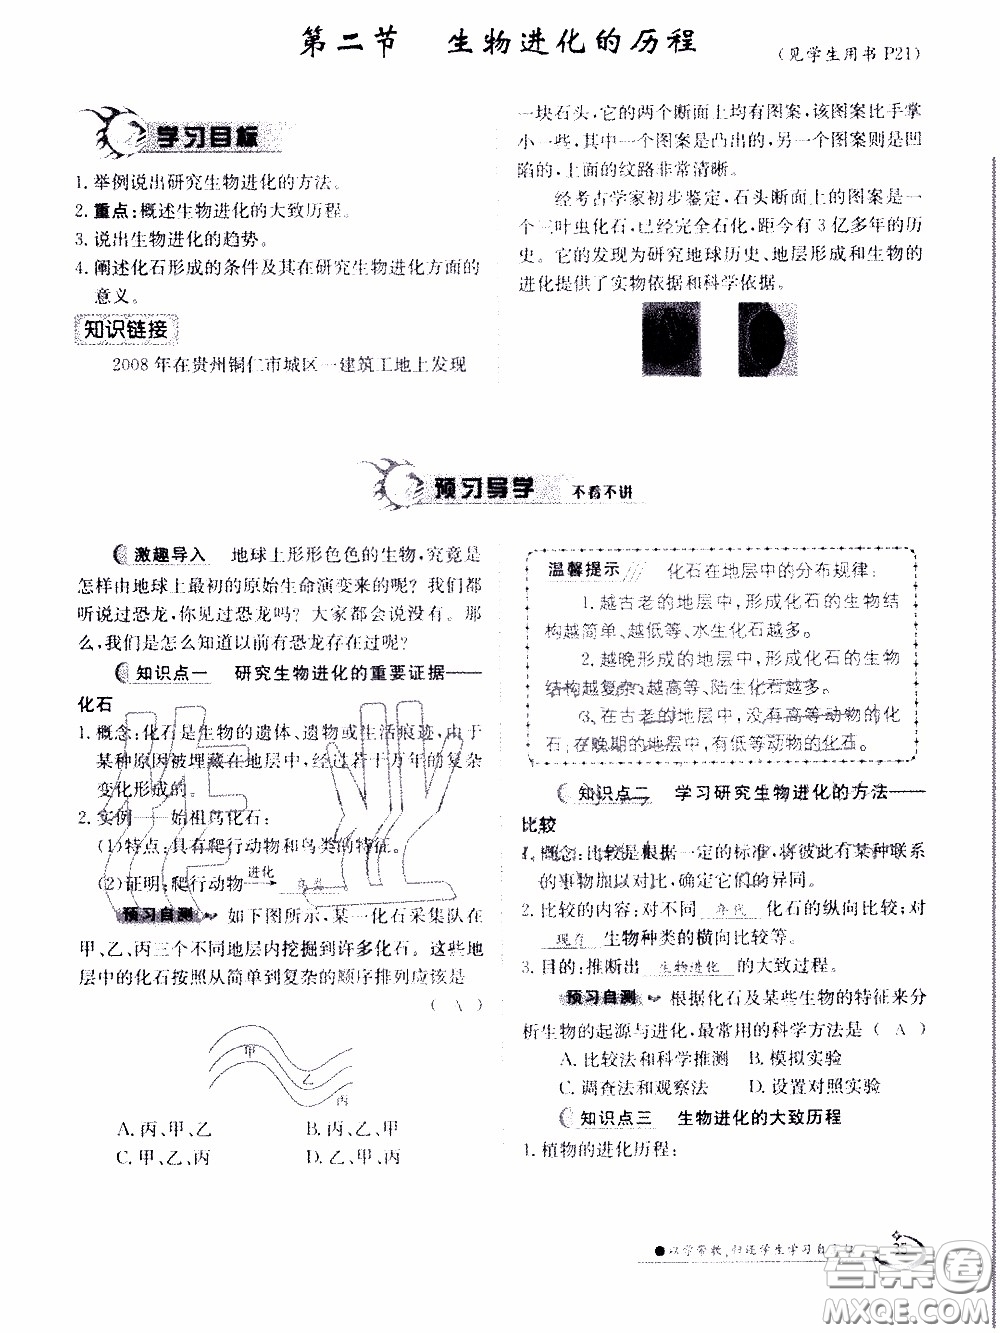 第二节 生物进化的历程
(见学生用书 P21)
学习目标
1. 举例说出研究生物进化的方法。
2. 重点:概述生物进化的大致历程。
3. 说出生物进化的趋势。
4. 阐述化石形成的条件及其在研究生物进化方面的
意义。
知识链接
2008 年在贵州铜仁市城区一建筑工地上发现
一块石头,它的两个断面上均有图案,该图案比手掌
小一些,其中一个图案是凸出的,另一个图案则是凹
陷的,上面的纹路非常清晰。
经考古学家初步鉴定,石头断面上的图案是一
个三叶虫化石,已经完全石化,距今有 3 亿多年的历
史。它的发现为研究地球历史、地层形成和生物的
进化提供了实物依据和科学依据。
预习导学 不看不讲
激趣导入 地球上形形色色的生物,究竟是
怎样由地球上最初的原始生命演变来的呢?我们都
听说过恐龙,你见过恐龙吗?大家都会说没有。那
么,我们是怎么知道以前有恐龙存在过呢?
知识点一 研究生物进化的重要证据——
化石
1. 概念:化石是生物的遗体、遗物或生活痕迹,由于
某种原因被埋藏在地层中,经过若干万年的复杂
变化形成的。
2. 实例——始祖鸟化石:
(1)特点:具有爬行动物和鸟类的特征。
(2)证明:爬行动物 进化 鸟类
预习自测 如下图所示,某一化石采集队在
甲、乙、丙三个不同地层内挖掘到许多化石。这些地
层中的化石按照从简单到复杂的顺序排列应该是
( A )
甲
乙
丙
A. 丙、甲、乙 B. 丙、乙、甲
C. 甲、乙、丙 D. 乙、丙、甲
温馨提示 化石在地层中的分布规律:
1. 越古老的地层中,形成化石的生物结
构越简单、越低等、水生化石越多。
2. 越晚形成的地层中,形成化石的生物
结构越复杂、越高等、陆生化石越多。
3. 在古老的地层中,没有高等动物的化
石;在晚期的地层中,有低等动物的化石。
知识点二 学习研究生物进化的方法——
比较
1. 概念:比较是根据一定的标准,将彼此有某种联系
的事物加以对比,确定它们的异同。
2. 比较的内容:对不同 年代 化石的纵向比较;对
现存 生物种类的横向比较等。
3. 目的:推断出 生物进化 的大致过程。
预习自测 根据化石及某些生物的特征来分
析生物的起源与进化,最常用的科学方法是( A )
A. 比较法和科学推测 B. 模拟实验
C. 调查法和观察法 D. 设置对照实验
知识点三 生物进化的大致历程
1. 植物的进化历程:
答案圈
MXQE.COM